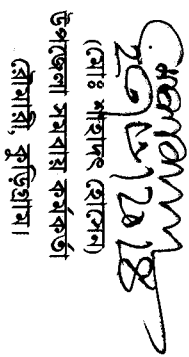 ২৫/৮/২৪
(মোঃ শাহাদৎ হোসেন)
উপজেলা সমবায় কর্মকর্তা
রৌমারী, কুড়িগ্রাম।